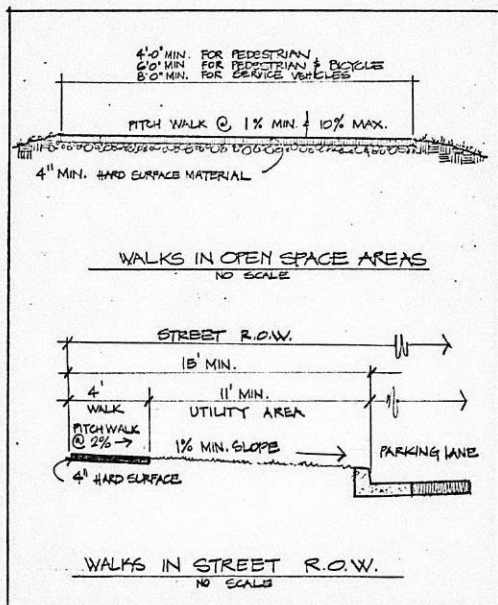 4'-0" MIN. FOR PEDESTRIAN
6'0" MIN FOR PEDECTRIAN & BICYCLE
8'0" MIN. FOR SERVICE VEHICLES
PITCH WALK @ 1% MIN. & 10% MAX.
4" MIN. HARD SURFACE MATERIAL
WALKS IN OPEN SPACE AREAS
NO SCALE
STREET R.O.W.
15' MIN.
4'
WALK
11' MIN.
UTILITY AREA
PITCH WALK
@ 2% →
1% MIN. SLOPE
PARKING LANE
4" HARD SURFACE
WALKS IN STREET R.O.W.
NO SCALE